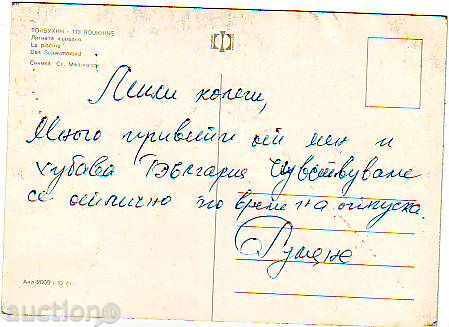 ТОЛБУХИН - TOLBOUKHINE
Лятната къпалня
La piscine
Das Sommerbad
Снимка: Ст.
Мили колеги,
Много привети от мен и
хубава България Чувствуваме
се отлично по време на отпуска.
Румене
auction